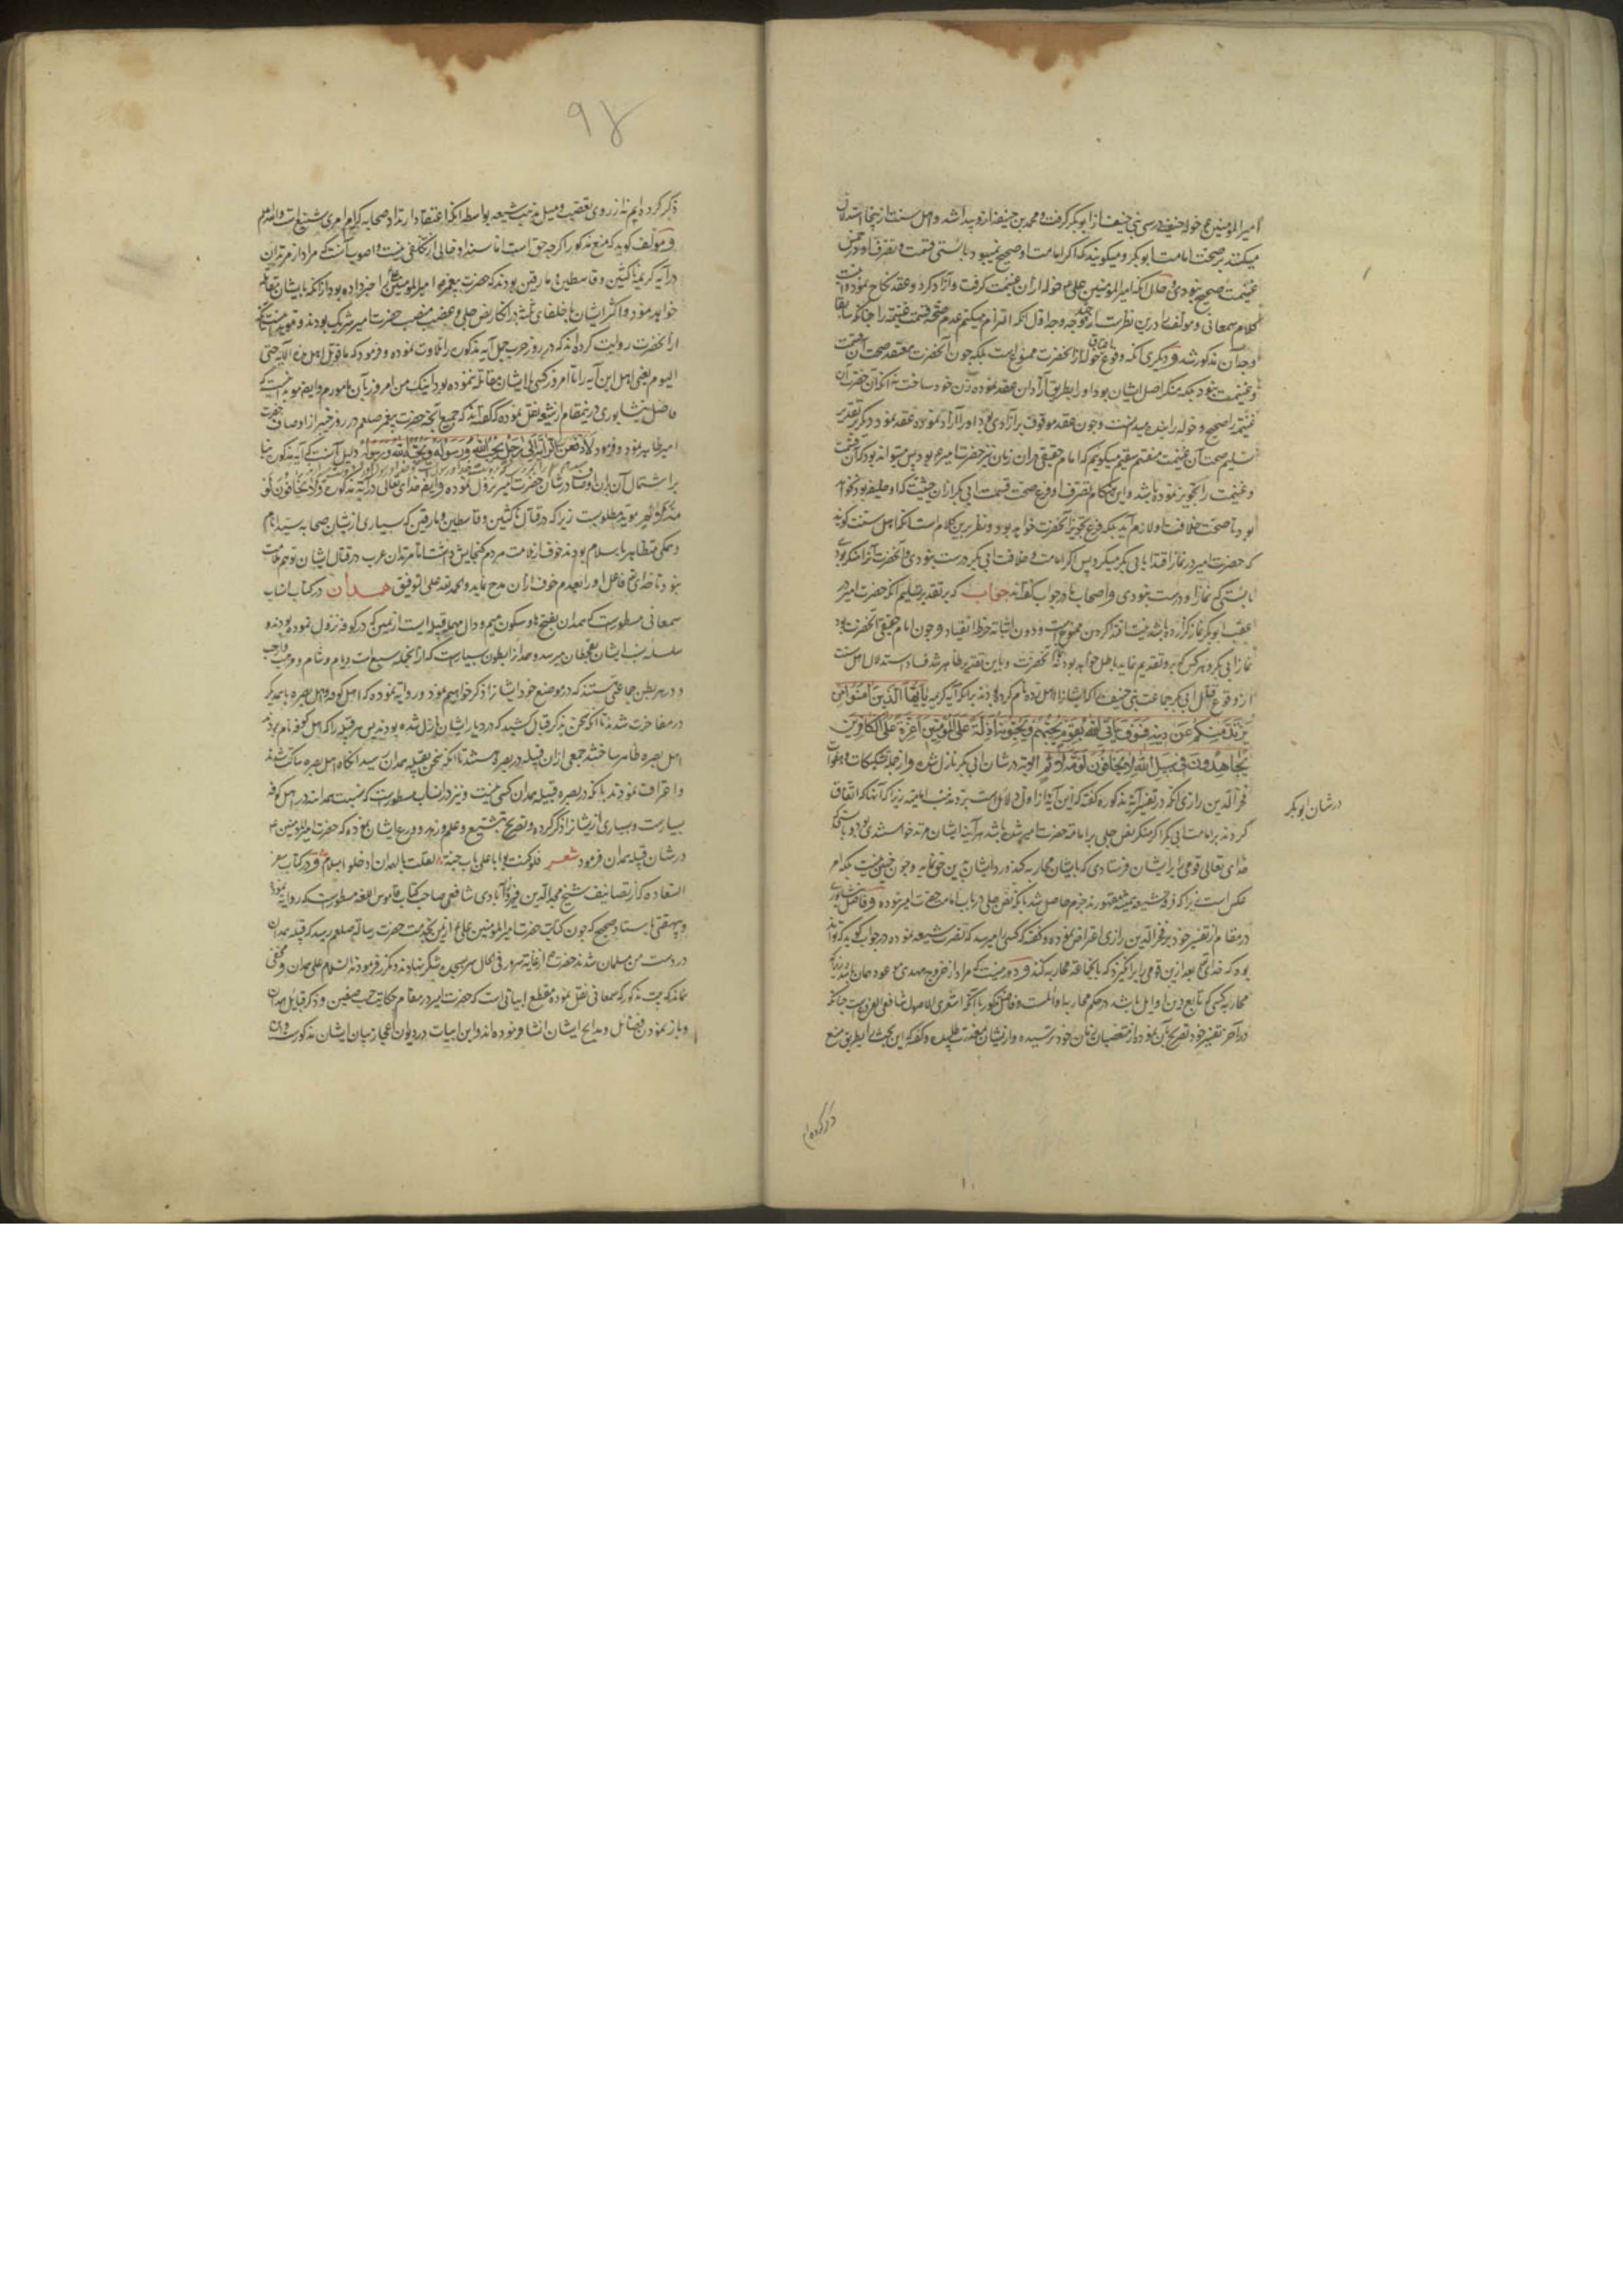 امیرالمؤمنین ع خوله حنفیه در سبی بنی حنیفه از ابوبکر گرفت و محمد بن حنیفه ازو پیدا شد و اهل سنت از ینجا استدلال
میکنند بر صحت امامت ابوبکر و میکویند که اکر امامت او صحیح نمیبود بایستی قسمت و تصرف او در خمس
غنیمت صحیح نبودی و حال آنکه امیرالمؤمنین علی ع خوله را از آن غنیمت کرفت و آزاد کرد و عقد نکاح نمود
کلام سمعانی و مولف را درین نظرست از چند وجه وجه اول آنکه
وجه آن مذکور شد و دیکری آنکه وقوع خوله از آنحضرت ممنوع است بلکه چون آنحضرت معتقد صحت آن قسمت
و غنیمت نبود بلکه منکر اصل ایشان بود او را بطریق آزادان عقد نموده زن خود ساخت
غنیمت را صحیح و خوله را بنده میدانست و چون عقد موقوف بر آزادی بود او را آزاد نموده عقد نمود و دیکر بر تقدیر
تسلیم صحت آن غنیمت میکوییم که امام حقیقی در آن زمان نیز حضرت امیر ع بود پس میتواند بود که آن قسمت
و غنیمت را تجویز نموده باشد و این هنکام تصرف او فرع صحت قسمت ابی بکر از آن حیثیت که او خلیفه بود نخواهد
بود تا صحت خلافت او لازم آید بلکه فرع تجویز آنحضرت خواهد بود و نظیر این کلام است آنکه اهل سنت کویند
که حضرت امیر در نماز اقتدا بابی بکر میکرد پس اکر امامت و خلافت ابی بکر درست نبودی و آنحضرت آنرا منکر بودی
بایستی که نماز او درست نبودی و اصحاب ما در جواب کفته اند جواب که بر تقدیر تسلیم آنکه حضرت امیر در
عقب ابوبکر نماز کزارده باشد نیت اقتدا کردن ممنوع است و دون اثباته خرط القتاد و چون امام حقیقی آنحضرت بود
نماز ابی بکر و هر کس که برو تقدیم نماید باطل خواهد بود نه نماز آنحضرت و باین تقدیر ظاهر شد فساد استدلال اهل سنت
از وقوع قتال ابی بکر با جماعت بنی حنیفه که ایشانرا اهل رده نام کرده بودند بر آنکه آیه کریمه یا ایها الذین آمنوا من
یرتد منکم عن دینه فسوف یاتی الله بقوم یحبهم و یحبونه اذلة علی المؤمنین اعزة علی الکافرین
یجاهدون فی سبیل الله و لا یخافون لومة لائم الآیه در شان ابی بکر نازل شده و از جمله تشکیکات و هفوات
فخرالدین رازی آنکه در تفسیر آیه مذکوره کفته که این آیه از اول دلائل است بر رد مذهب امامیه زیرا که آنانکه اتفاق
کردند بر امامت ابی بکر اکر منکر نص جلی بر امامت حضرت امیر شده باشند هرآینه ایشان مرتد خواهند بود و بایستی که
خدای تعالی قومی را بر ایشان فرستادی که با ایشان محاربه کنند و رد ایشان بدین حق نمایند و چون چنین نیست بلکه امر
عکس است زیرا که فرقه شیعه همیشه مقهورند جزم حاصل شد بآنکه نص جلی در باب امامت حضرت امیر نبوده و فاضل نیشابوری
در مقام از تفسیر خود بر فخرالدین رازی اعتراض نموده و کفته که کسی را میرسد که نصرت شیعه نموده در جواب کوید که تواند
بود که خدای تع بعد ازین قومی را برانکیزد که با آنجماعه محاربه کنند و دور نیست که مراد از خروج مهدی موعود همان باشد زیرا که
محاربه کسی که تابع دین اوایل باشد در حکم محاربه با اوائل است و فاضل مذکور با آنکه اشعری الاصول شافعی الفروعست چنانکه
در آخر تفسیر خود تصریح بآن نموده از متعصبان زمان خود ترسیده و از ایشان معذرت طلبیده و کفته که این بحث را بطریق منع
در شان ابوبکر
ذکر کرده ام
۹۴
ذکر کرده ایم نه از روی تعصب و میل مذهب شیعه بواسطه آنکه اعتقاد ارتداد صحابه کرام امری شنیع است والله اعلم
و مؤلف کوید که منع مذکور اکرچه حق است اما سند او خالی از تکلفی نیست و اصوب آنست که مراد از مرتدان
در آیه کریمه ناکثین و قاسطین و مارقین بودند که حضرت پیغمبر امیرالمؤمنین علی را خبر داده بود از آنکه با ایشان مقاتله
خواهد نمود و اکثر ایشان با خلفای ثلثه در انکار نص جلی و غصب منصب حضرت امیر شریک بودند و مؤید اینست آنکه
از آنحضرت روایت کرده اند که در روز حرب جمل آیه مذکوره را تلاوت نموده و فرمود که ما قوتل اهل هذه الآیه حتی
الیوم یعنی اهل این آیه را تا امروز کسی با ایشان مقاتله ننموده بود و اینک من امروز بآن مامورم و ایضا مؤید اینست که
فاضل نیشابوری درینمقام از شیعه نقل نموده که کفته اند که جمیع آنچه حضرت پیغمبر صلعم در روز خیبر از اوصاف حضرت
امیر ظاهر نمود و فرمود لادفعن الرایة الی رجل یحب الله و رسوله و یحبه الله و رسوله دلیل آنست که آیه مذکوره بنا
بر اشتمال آن بر آن اوصاف در شان حضرت امیر نزول نموده و ایضا خدای تعالی در آیه مذکوره و لا یخافون لومة
لائم نیز مؤید مطلوبست زیرا که در قتال ناکثین و قاسطین و مارقین که بسیاری از یشان صحابه سید انام
و همکی متظاهر باسلام بودند خوف از ملامت مردم کنجایش داشت اما مرتدان عرب در قتال ایشان توهم ملامت
نبود تا خدای تع فاعل او را بعدم خوف از آن مدح نماید والحمد لله علی التوفیق همدان در کتاب انساب
سمعانی مسطورست که همدان بفتح ها و سکون میم و دال مهمله قبیله ایست از یمن که در کوفه نزول نموده بودند و
سلسله نسب ایشان بقحطان میرسد و همدان را بطون بسیارست که از آنجمله سبیع است و یام و شبام و مرهبه و ارحب
و در هر بطن جماعتی هستند که در موضع خود ایشانرا ذکر خواهیم نمود و روایه نموده که اهل کوفه و اهل بصره با همدیکر
در مفاخرت شدند تا آنکه سخن بذکر قبائل کشید که در دیار ایشان نازل شده بودند پس هر قبیله را که اهل کوفه نام بردند
اهل بصره ظاهر ساختند جمعی از آن قبیله در بصره هستند تا آنکه سخن بقبیله همدان رسید آنکاه اهل بصره ساکت شدند
و اعتراف نمودند بآنکه در بصره قبیله همدان کسی نیست و نیز در انساب مسطورست که نسبت همدانی در اهل کوفه
بسیارست و بسیاری از یشانرا ذکر کرده و تصریح بتشیع و علم و زهد و ورع ایشان نموده که حضرت امیرالمؤمنین ع
در شان قبیله همدان فرمود شعر فلو کنت بوابا علی باب جنة لقلت لهمدان ادخلوا بسلام و در کتاب سفر
السعاده که از تصانیف شیخ مجدالدین فیروزآبادی شافعی صاحب کتاب قاموس اللغه مسطورست که روایه نمود
بیهقی باسناد صحیح که چون کتابت حضرت امیرالمؤمنین علی ع از یمن بخدمت حضرت رساله صلعم رسید که قبیله همدان
در دست من مسلمان شدند حضرت از غایه سرور فی الحال سر بسجده شکر نهادند و مکرر فرمودند السلام علی همدان و مخفی
نماند که بیت مذکور که سمعانی نقل نموده مقطع ابیاتی است که حضرت امیر در مقام حکایت حرب صفین و ذکر قبائل همدان
و باز نمودن فضائل و مدایح ایشان انشا فرموده اند و این ابیات در دیوان اعجاز بیان ایشان مذکورست